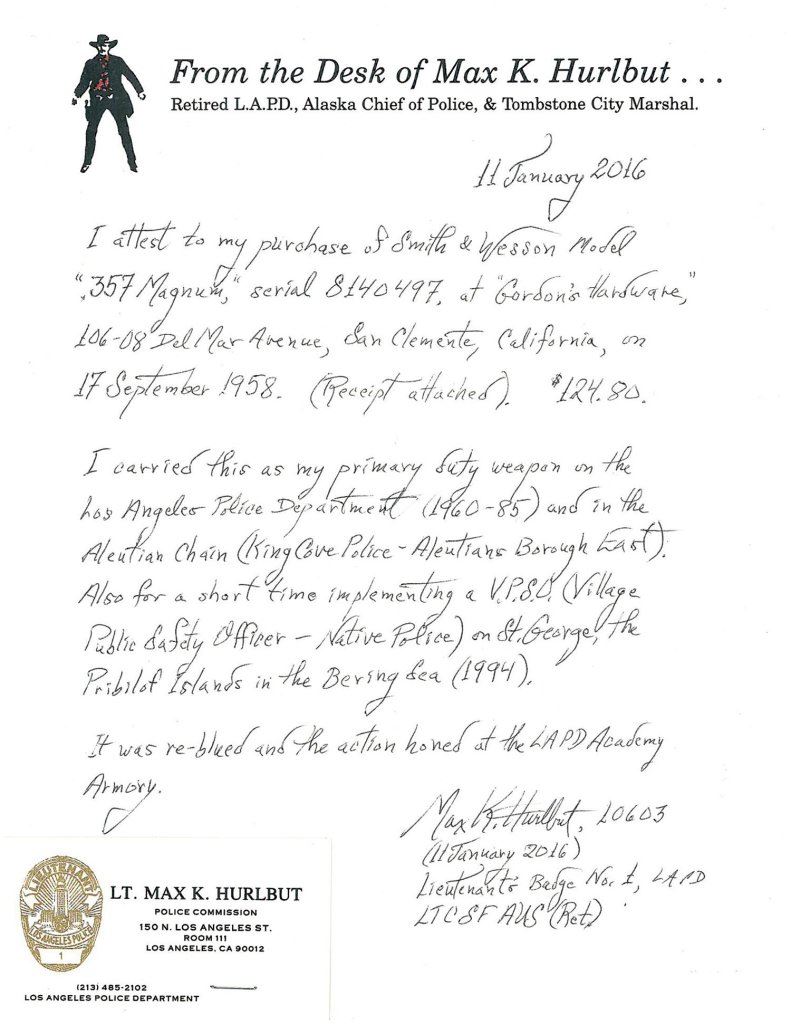 From the Desk of Max K. Hurlbut . . .
Retired L.A.P.D., Alaska Chief of Police, & Tombstone City Marshal.
11 January 2016
I attest to my purchase of Smith & Wesson Model
".357 Magnum," serial S140497, at "Gordon's Hardware,"
106-08 Del Mar Avenue, San Clemente, California, on
17 September 1958. (Receipt attached). $124.80.
I carried this as my primary duty weapon on the
Los Angeles Police Department (1960-85) and in the
Aleutian Chain (King Cove Police - Aleutians Borough East).
Also for a short time implementing a V.P.S.O. (Village
Public Safety Officer - Native Police) on St. George, the
Pribilof Islands in the Bering Sea (1994).
It was re-blued and the action honed at the LAPD Academy
Armory.
Max K. Hurlbut, 10603
(11 January 2016)
Lieutenant's Badge No. 1, LAPD
LTC SF AUS (Ret)
LIEUTENANT
LOS ANGELES POLICE
1
LT. MAX K. HURLBUT
POLICE COMMISSION
150 N. LOS ANGELES ST.
ROOM 111
LOS ANGELES, CA 90012
(213) 485-2102
LOS ANGELES POLICE DEPARTMENT